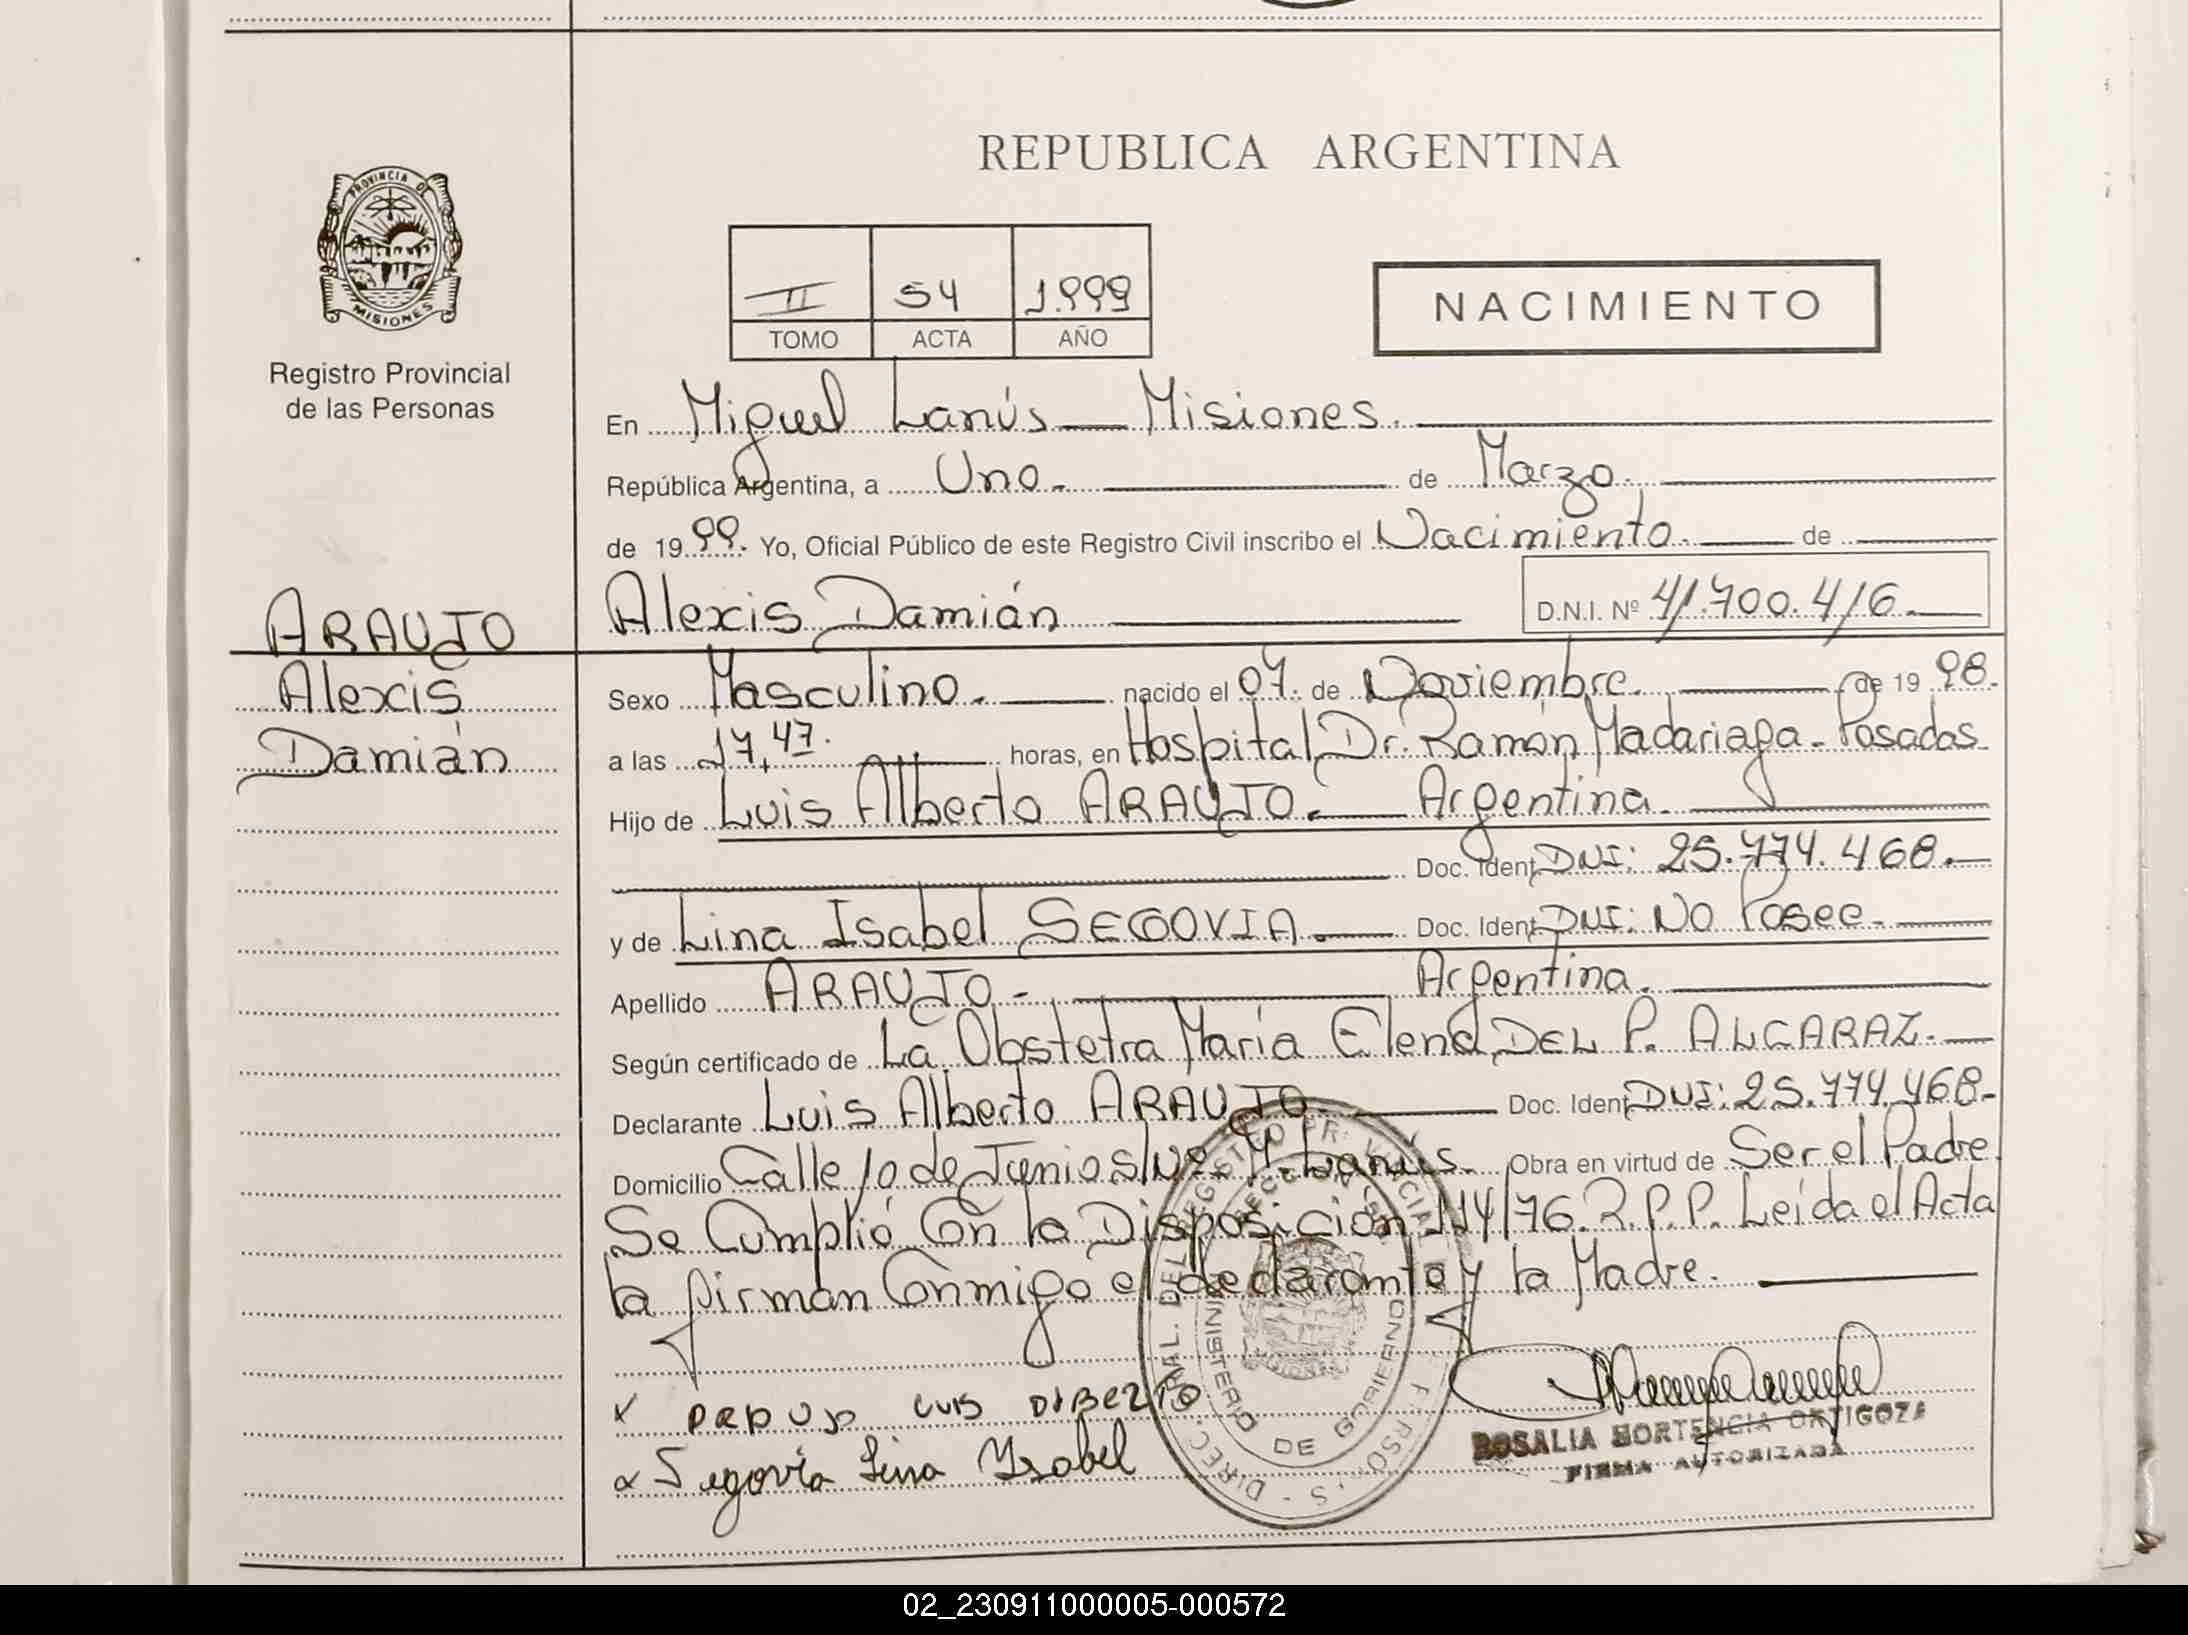 REPUBLICA ARGENTINA
PROVINCIA DE
MISIONES
Registro Provincial
de las Personas
II 54 1.999
TOMO ACTA AÑO
NACIMIENTO
En Miguel Lanús — Misiones.
República Argentina, a Uno. de Marzo.
de 1999. Yo, Oficial Público de este Registro Civil inscribo el Nacimiento. de
Alexis Damián D.N.I. Nº 41.700.416.
ARAUJO
Alexis
Damián
Sexo Masculino. nacido el 07. de Noviembre. de 1998.
a las 17,47. horas, en Hospital Dr. Ramón Madariaga - Posadas
Hijo de Luis Alberto ARAUJO. — Argentina.
Doc. Ident DNI: 25.774.468.
y de Lina Isabel SEGOVIA. Doc. Ident DNI: No Posee.
Apellido ARAUJO - Argentina.
Según certificado de La Obstetra María Elena DEL P. ALCARAZ.
Declarante Luis Alberto ARAUJO. Doc. Ident DNI: 25.774.468-
Domicilio Calle 10 de Junio S/Nº. M. Lanús. Obra en virtud de Ser el Padre
Se Cumplió Con la Disposición 114/76. R.P.P. Leída el Acta
la firman Conmigo el declarante y la Madre.
x LUIS
x Segovia Lina Ysabel
ROSALIA HORTENCIA ORTIGOZA
FIRMA AUTORIZADA
MINISTERIO DE GOBIERNO
02_230911000005-000572